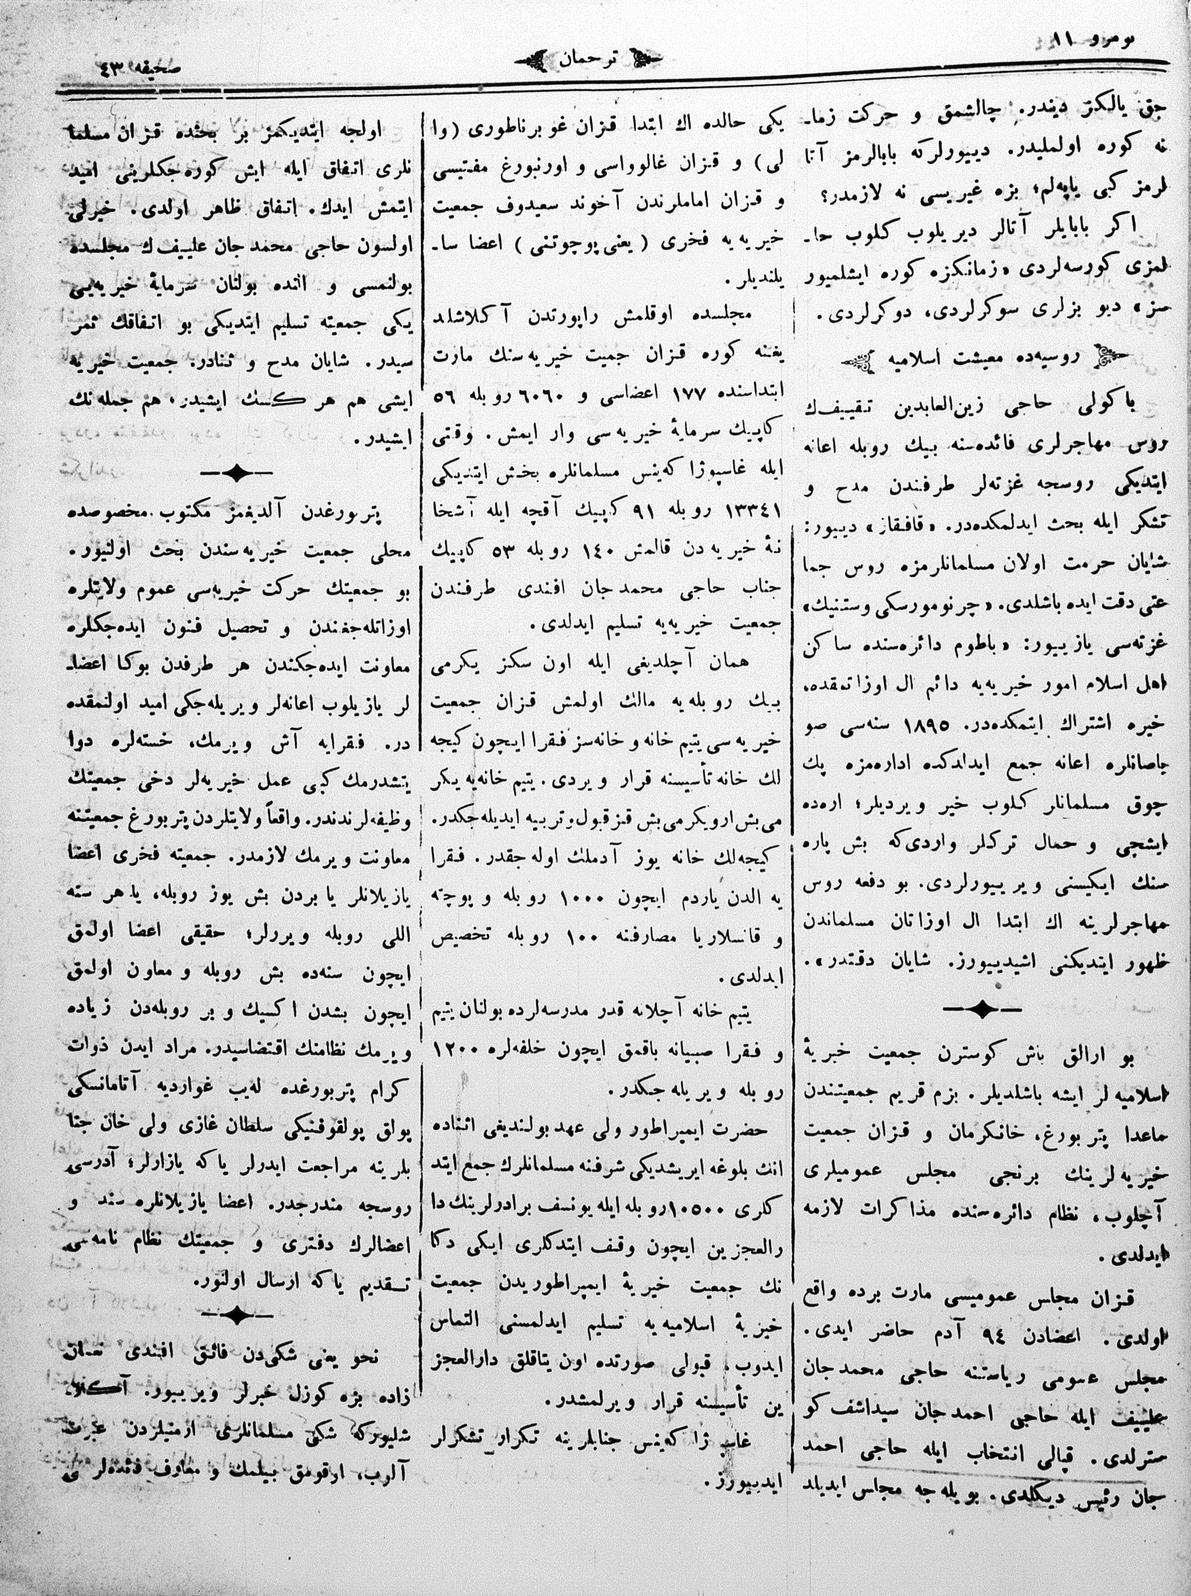 نومرو ١١
ترجمان
صحیفه ٤٣
جق یالکز دیندر. چالشمق و حرکت زما۔
نه کوره اولملیدر. دییورلرکه بابالرمز آتا
لرمز کبی یاپه‌لم؛ بزه غیریسی نه لازمدر؟
اکر بابایلر آتالر دیریلوب کلوب حا۔
لمزی کورسه‌لردی «زمانکزه کوره ایشلمیور
سز» دیو بزلری سوکرلردی، دوکرلردی.
روسیه‌ده معیشت اسلامیه
باکولی حاجی زین‌العابدین تقییف‌ك
روس مهاجرلری فائده‌سنه بیك روبله اعانه
ایتدیکی روسجه غزته‌لر طرفندن مدح و
تشکر ایله بحث ایدلمکده‌در. «قافقاز» دییور:
شایان حرمت اولان مسلمانلرمزه روس جما
عتی دقت ایده باشلدی. «چرنومورسکی وستنیك»
غزته‌سی یازییور: «باطوم دائره‌سنده ساکن
اهل اسلام امور خیریه‌یه دائم ال اوزاتمقده،
خیره اشتراك ایتمکده‌در. ١٨٩٥ سنه‌سی صو
باصانلره اعانه جمع ایدلدکده اداره‌مزه پك
چوق مسلمانلر کلوب خیر ویردیلر؛ اره‌ده
ایشچی و حمال ترکلر واردی‌که بش پاره
سنك ایکیسنی ویرییورلردی. بو دفعه روس
مهاجرلرینه اك ابتدا ال اوزاتان مسلماندن
ظهور ایتدیکنی اشیدییورز. شایان دقتدر».
بو ارالق باش کوسترن جمعیت خیریهٔ
اسلامیه‌لر ایشه باشلدیلر. بزم قریم جمعیتندن
ماعدا پتربورغ، خانکرمان و قزان جمعیت
خیریه‌لرینك برنجی مجلس عمومیلری
آچلوب، نظام دائره‌سنده مذاکرات لازمه
ایدلدی.
قزان مجلس عمومیسی مارت برده واقع
اولدی. اعضادن ٩٤ آدم حاضر ایدی.
مجلس عمومی ریاستنه حاجی محمدجان
علییف ایله حاجی احمدجان سیداشف کو
سترلدی. قپالی انتخاب ایله حاجی احمد
جان رئیس دیکلدی. بویله‌جه مجلس ایدیلد
یکی حالده اك ابتدا قزان غوبرناطوری (وا
لی) و قزان غالوواسی و اورنبورغ مفتیسی
و قزان اماملرندن آخوند سعیدوف جمعیت
خیریه‌یه فخری (یعنی پوچوتنی) اعضا سا۔
یلندیلر.
مجلسده اوقلمش راپورتدن آکلاشلد
یغنه کوره قزان جمیت خیریه‌سنك مارت
ابتداسنده ١٧٧ اعضاسی و ٦٠٦٠ روبله ٥٦
کاپیك سرمایهٔ خیریه‌سی وار ایمش. وقتی
ایله غاسپوژا که‌ینس مسلمانلره بخش ایتدیکی
١٣٣٤١ روبله ٩١ کاپیك آقچه ایله آشخا
نهٔ خیریه‌دن قالمش ١٤٠ روبله ٥٣ کاپیك
جناب حاجی محمدجان افندی طرفندن
جمعیت خیریه‌یه تسلیم ایدلدی.
همان آچلدیغی ایله اون سکز یکرمی
بیك روبله‌یه مالك اولمش قزان جمعیت
خیریه‌سی یتیم خانه و خانه‌سز فقرا ایچون کیجه
لك خانه تأسیسنه قرار ویردی. یتیم خانه‌یه یکر
می‌بش ارویکرمی‌بش قزقبول‌وتربیه ایدیله‌جکدر.
کیجه‌لك خانه یوز آدملك اوله‌جقدر. فقرا
یه الدن یاردم ایچون ١٠٠٠ روبله و پوچته
و قانسلاریا مصارفنه ١٠٠ روبله تخصیص
ایدلدی.
یتیم خانه آچلانه قدر مدرسه‌لرده بولنان یتیم
و فقرا صبیانه باقمق ایچون خلفه‌لره ١٢٠٠
روبله ویریله‌جکدر.
حضرت ایمپراطور ولی عهد بولندیغی اثناده
انك بلوغه ایریشدیکی شرفنه مسلمانلرك جمع ایتد
کلری ١٠٥٠٠روبله ایله یونسف برادرلرینك دا
رالعجزین ایچون وقف ایتدکلری ایکی دکا
نك جمعیت خیریهٔ ایمپراطوریدن جمعیت
خیریهٔ اسلامیه‌یه تسلیم ایدلمسنی التماس
ایدوب، قبولی صورتده اون یتاقلق دارالعجز
ین تأسیسنه قرار ویرلمشدر.
غاسپوژا که‌ینس جنابلرینه تکرار تشکرلر
ایدییورز.
اولجه ایتدیکمز بر بحثده قزان مسلما
نلری اتفاق ایله ایش کوره‌جکلرینی امید
ایتمش ایدك. اتفاق ظاهر اولدی. خیرلی
اولسون حاجی محمدجان علییف‌ك مجلسده
بولنمسی و انده بولنان سرمایهٔ خیریه‌یی
یکی جمعیته تسلیم ایتدیکی بو اتفاقك ثمر
سیدر. شایان مدح و ثنادر. جمعیت خیریه
ایشی هم هر کسك ایشیدر، هم جمله‌نك
ایشیدر.
پتربورغدن آلدیغمز مکتوب مخصوصده
محلی جمعیت خیریه‌سندن بحث اولنیور.
بو جمعیتك حرکت خیریه‌سی عموم ولایتلره
اوزاتله‌جغندن و تحصیل فنون ایده‌جکلره
معاونت ایده‌جکندن هر طرفدن بوکا اعضا۔
لر یازیلوب اعانه‌لر ویریله‌جکی امید اولنمقده
در. فقرایه آش ویرمك، خسته‌لره دوا
یتشدرمك کبی عمل خیریه‌لر دخی جمعیتك
وظیفه‌لرندندر. واقعاً ولایتلردن پتربورغ جمعیتنه
معاونت ویرمك لازمدر. جمعیته فخری اعضا
یازیلانلر یا بردن بش یوز روبله، یا هر سنه
اللی روبله ویررلر؛ حقیقی اعضا اولمق
ایچون سنه‌ده بش روبله و معاون اولمق
ایچون بشدن اکسیك و بر روبله‌دن زیاده
ویرمك نظامنك اقتضاسیدر. مراد ایدن ذوات
کرام پتربورغده له‌یب غواردیه آتامانسکی
پولق پولقوقنیکی سلطان غازی ولی خان جنا
بلرینه مراجعت ایدرلر یاکه یازارلر؛ آدرسی
روسجه مندرجدر. اعضا یازیلانلره سند و
اعضالرك دفتری و جمعیتك نظام نامه‌سی
تقدیم یاکه ارسال اولنور.
نخو یعنی شکی‌دن فائق افندی نعمان
زاده بزه کوزل خبرلر ویرییور. آکلا۔
شلیورکه شکی مسلمانلری ارمنیلردن عبرت
آلوب، ارقومق بیلمك و معارف فائده‌لری